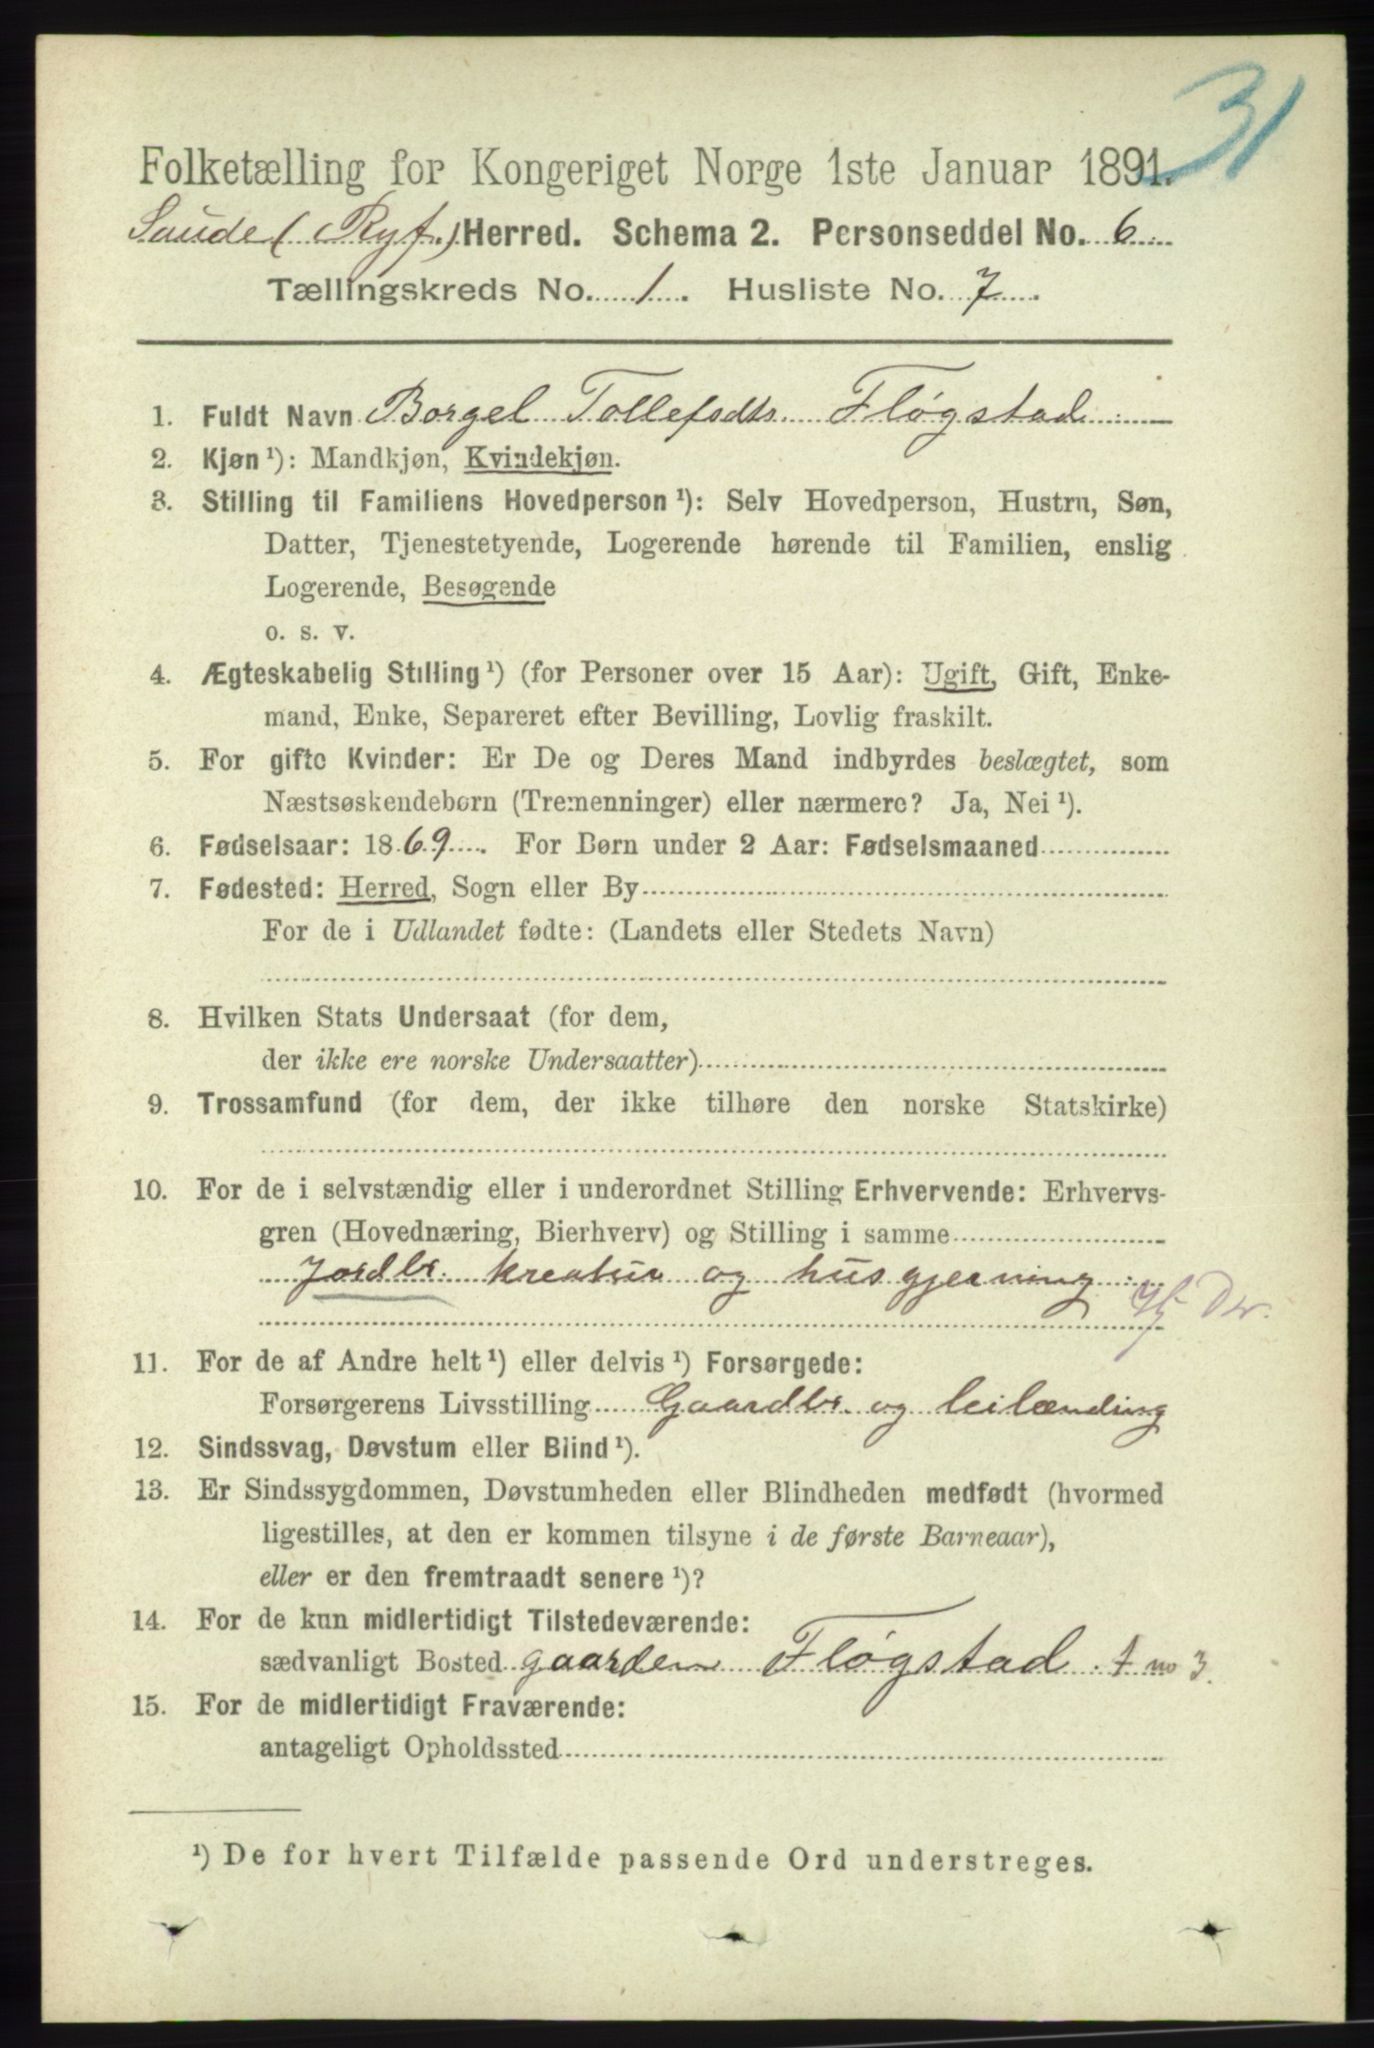 31
Folketælling for Kongeriget Norge 1ste Januar 1891.
Saude (Ryf.) Herred. Schema 2. Personseddel No. 6
Tællingskreds No. 1. Husliste No. 7
1. Fuldt Navn Borgel Tollefsdtr. Fløgstad
2. Kjøn ¹): Mandkjøn, Kvindekjøn.
3. Stilling til Familiens Hovedperson ¹): Selv Hovedperson, Hustru, Søn,
Datter, Tjenestetyende, Logerende hørende til Familien, enslig
Logerende, Besøgende
o. s. v.
4. Ægteskabelig Stilling ¹) (for Personer over 15 Aar): Ugift, Gift, Enke-
mand, Enke, Separeret efter Bevilling, Lovlig fraskilt.
5. For gifte Kvinder: Er De og Deres Mand indbyrdes beslægtet, som
Næstsøskendebørn (Tremenninger) eller nærmere? Ja, Nei ¹).
6. Fødselsaar: 1869. For Børn under 2 Aar: Fødselsmaaned
7. Fødested: Herred, Sogn eller By
For de i Udlandet fødte: (Landets eller Stedets Navn)
8. Hvilken Stats Undersaat (for dem,
der ikke ere norske Undersaatter)
9. Trossamfund (for dem, der ikke tilhøre den norske Statskirke)
10. For de i selvstændig eller i underordnet Stilling Erhvervende: Erhvervs-
gren (Hovednæring, Bierhverv) og Stilling i samme
Jordbr. kreatur og husgjerning
11. For de af Andre helt ¹) eller delvis ¹) Forsørgede:
Forsørgerens Livsstilling Gaardbr. og leilænding
12. Sindssvag, Døvstum eller Blind ¹).
13. Er Sindssygdommen, Døvstumheden eller Blindheden medfødt (hvormed
ligestilles, at den er kommen tilsyne i de første Barneaar),
eller er den fremtraadt senere ¹)?
14. For de kun midlertidigt Tilstedeværende:
sædvanligt Bosted gaarden Fløgstad no 3.
15. For de midlertidigt Fraværende:
antageligt Opholdssted
¹) De for hvert Tilfælde passende Ord understreges.